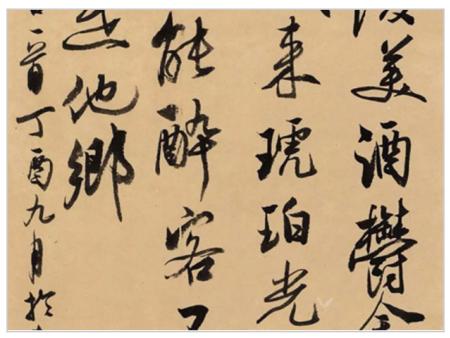 美酒鬱金
來琥珀光
能醉客不
是他鄉
一首丁酉九月於